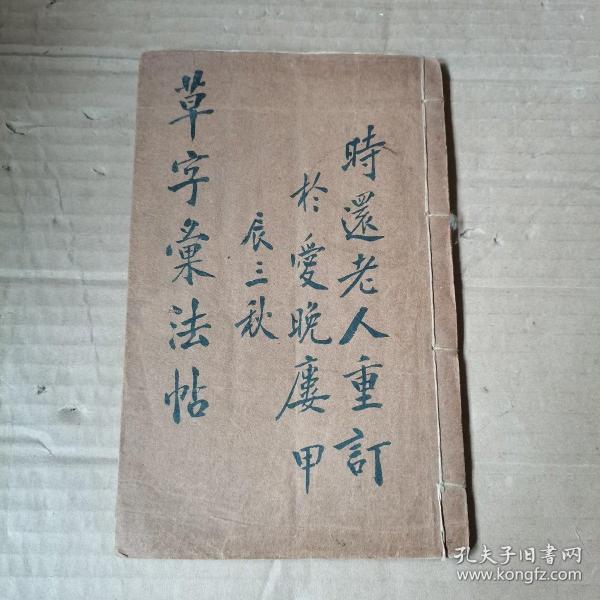 時還老人重訂
於愛晚廔甲
辰三秋
草字彙法帖
孔夫子旧書网
www.kongfz.com